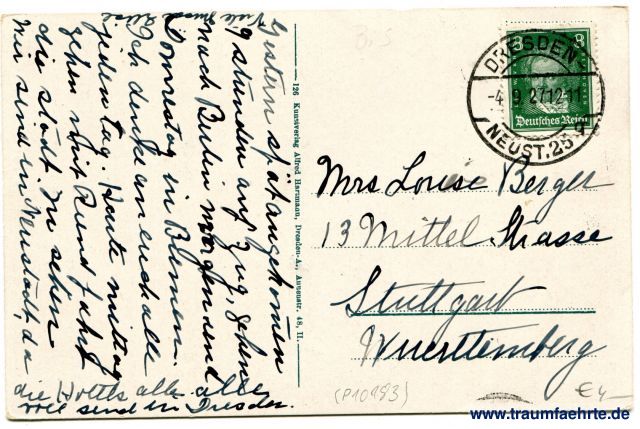 Gestern spät angekommen
9 stunden auf Zug, gehen
nach Berlin morgen und
Donnerstag in Bremen.
Ich denke an euch alle
jeden tag. Heute mittag
gehen mit Rund fahrt
die stadt zu sehen
Wir sind in Neustadt, da
die Hottls alle alles
voll send in Dresden.
Viele
126 Kunstverlag Alfred Hartmann, Dresden-A., Annenstr. 48, II.
B.S
8 8
Deutsches Reich
DRESDEN-
-4.9.27 12-1
NEUST. 25
Mrs Louise Berger
13 Mittel Strasse
Stuttgart
Wuerttemberg
(P10183)
€4-
www.traumfaehrte.de